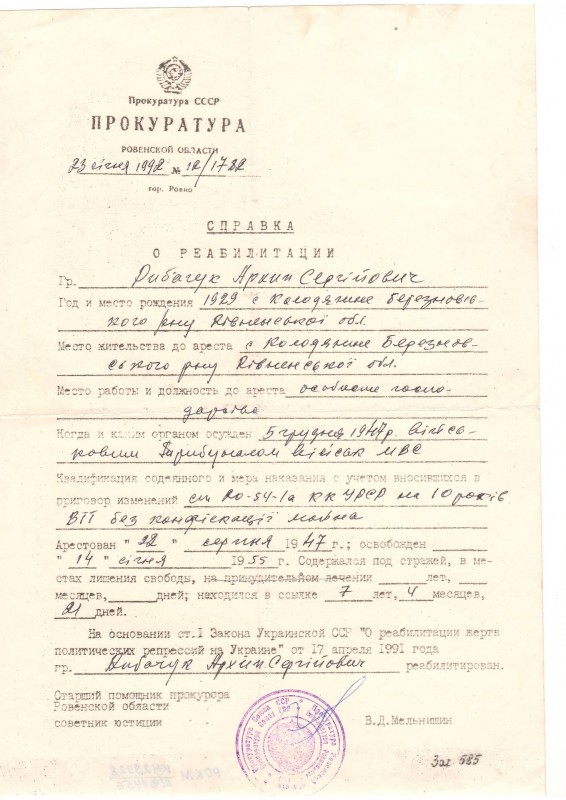 Прокуратура СССР
ПРОКУРАТУРА
РОВЕНСКОЙ ОБЛАСТИ
23 січня 1992 № 12/1782
гор. Ровно
СПРАВКА
О РЕАБИЛИТАЦИИ
Гр. Дибачук Архип Сергійович
Год и место рождения 1929 с Колодязне Березнівсь-
кого р-ну Рівненської обл.
Место жительства до ареста с Колодязне Березнів-
ського р-ну Рівненської обл.
Место работы и должность до ареста особисте госпо-
дарство
Когда и каким органом осужден 5 грудня 1947 р. війсь-
ковим Трибуналом військ МВС
Квалификация содеянного и мера наказания с учетом вносившихся в
приговор изменений ст 20-54-1а КК УРСР на 10 років
ВТТ без конфіскації майна
Арестован " 22 " серпня 1947 г.; освобожден
" 14 " січня 1955 г. Содержался под стражей, в ме-
стах лишения свободы, на принудительном лечении лет,
месяцев, дней; находился в ссылке 7 лет, 4 месяцев,
21 дней.
На основании ст.I Закона Украинской ССР "О реабилитации жертв
политических репрессий на Украине" от 17 апреля 1991 года
гр. Дибачук Архип Сергійович реабилитирован.
Старший помощник прокурора
Ровенской области
советник юстиции В.Д.Мельнишин
Зал. 585